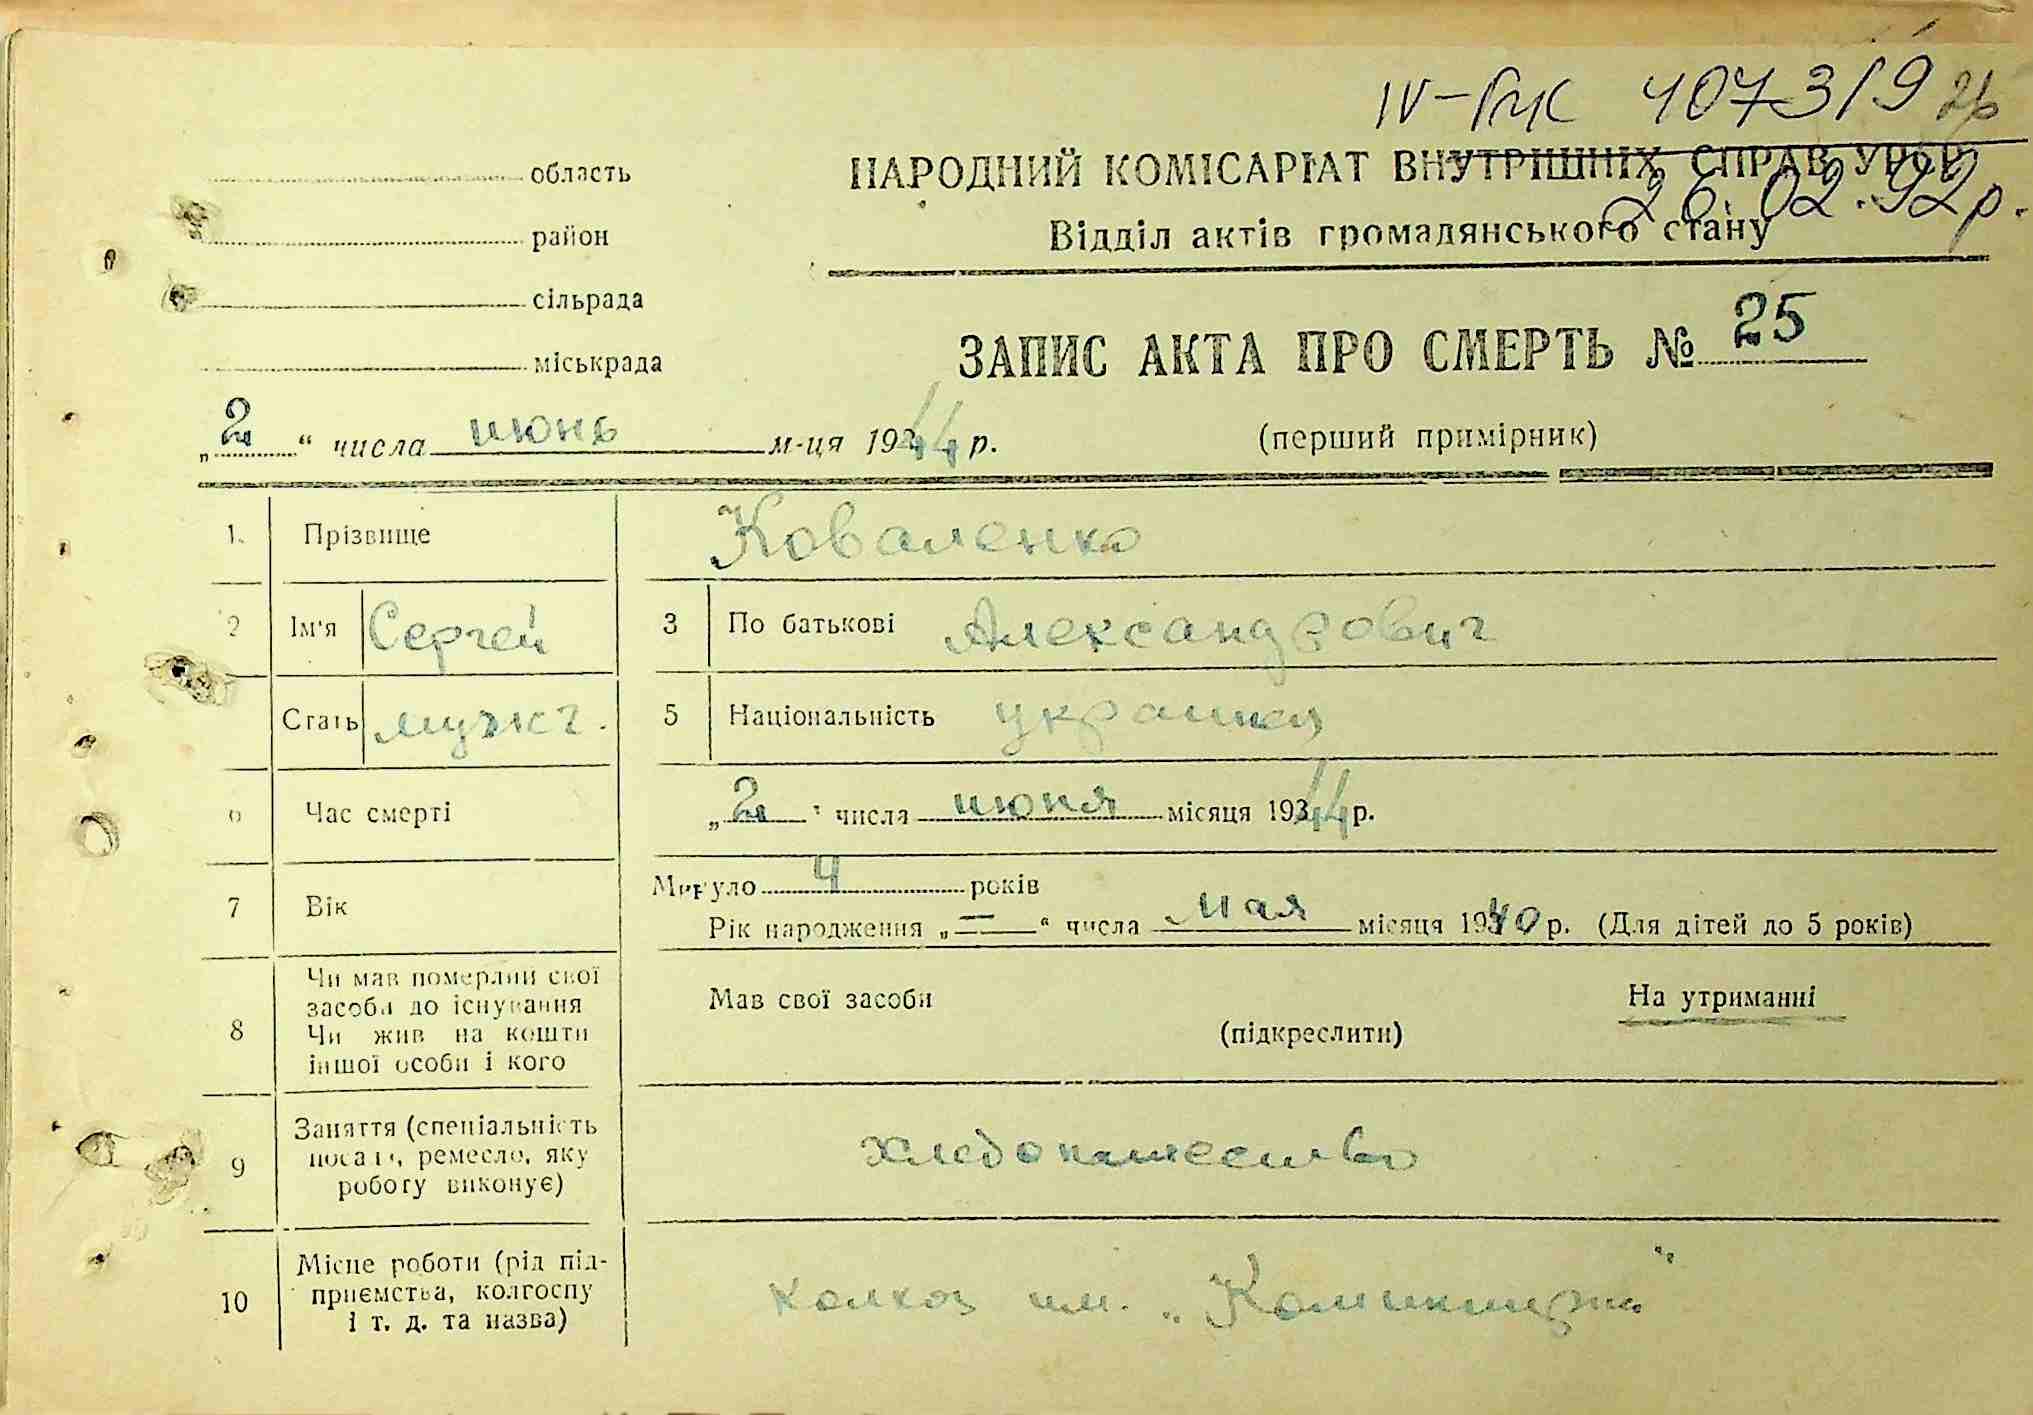 IV-БК 407319 26
26.02.92р.
область
район
сільрада
міськрада
НАРОДНИЙ КОМІСАРІАТ ВНУТРІШНІХ СПРАВ УРСР
Відділ актів громадянського стану
ЗАПИС АКТА ПРО СМЕРТЬ № 25
(перший примірник)
„2“ числа июнь м-ця 1944 р.
1. Прізвище Коваленко
2 Ім'я Сергей 3 По батькові Александрович
Стать мужч. 5 Національність украинец
6 Час смерті „2“ числа июня місяця 1944 р.
7 Вік Минуло 4 років
Рік народження „—“ числа мая місяця 1940 р. (Для дітей до 5 років)
8 Чи мав померлий свої
засоби до існування
Чи жив на кошти
іншої особи і кого
Мав свої засоби На утриманні
(підкреслити)
9 Заняття (спеціальність
посада, ремесло, яку
роботу виконує)
хлебопашество
10 Місце роботи (рід під-
приємства, колгоспу
і т. д. та назва)
колхоз им.